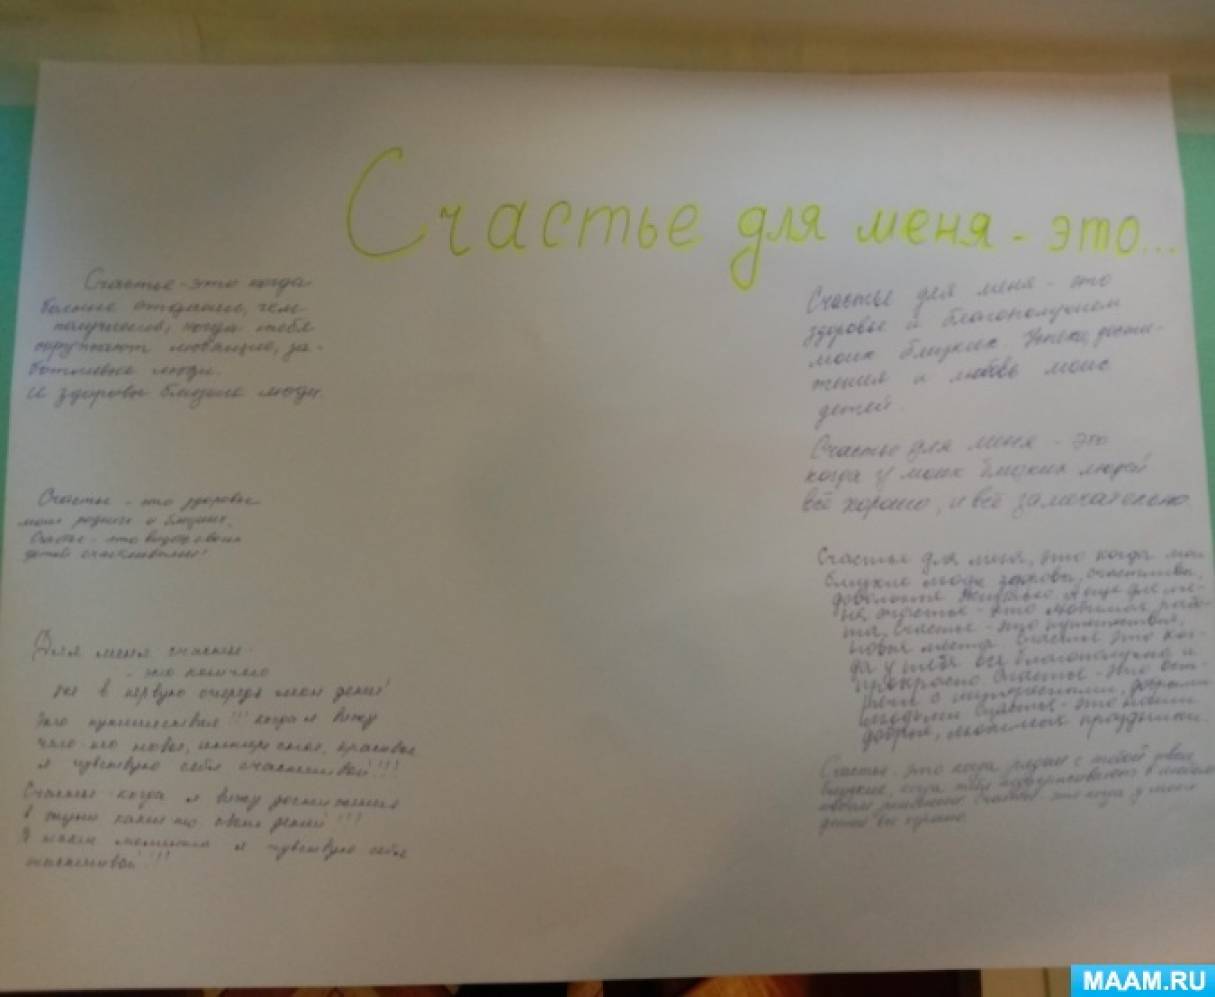 Счастье для меня - это...
Счастье - это когда
больше отдаешь, чем
получаешь, когда тебя
окружают любящие, за-
ботливые люди.
и здоровы близкие люди.
Счастье - это здоровье
моих родных и близких.
Счастье - это видеть своих
детей счастливыми!
Для меня счастье -
- это конечно
же в первую очередь мои дети!
Это путешествия!!! когда я вижу
что-то новое, интересное, красивое
я чувствую себя счастливой!!!
Счастье когда я вижу достижения
в жизни своих детей!!!
В такие моменты я чувствую себя
счастливой!!!
Счастье для меня - это
здоровье и благополучием
моих близких. Успехи, дости-
жения и любовь моих
детей.
Счастье для меня - это
когда у моих близких людей
всё хорошо, и всё замечательно
Счастье для меня, это когда мои
близкие люди здоровы, счастливы,
довольные жизнью. А еще для ме-
ня, счастье - это любимая рабо-
та, счастье - это путешествия,
новые места. Счастье это ког-
да у тебя все благополучно и
прекрасно. Счастье - это
с интересными, добрыми
людьми. Счастье - это
добрые, любимые праздники.
Счастье - это когда рядом с тобой твои
близкие, когда тебя поддерживают в любом
твоем решении. Счастье это когда у моих
детей все хорошо.
MAAM.RU